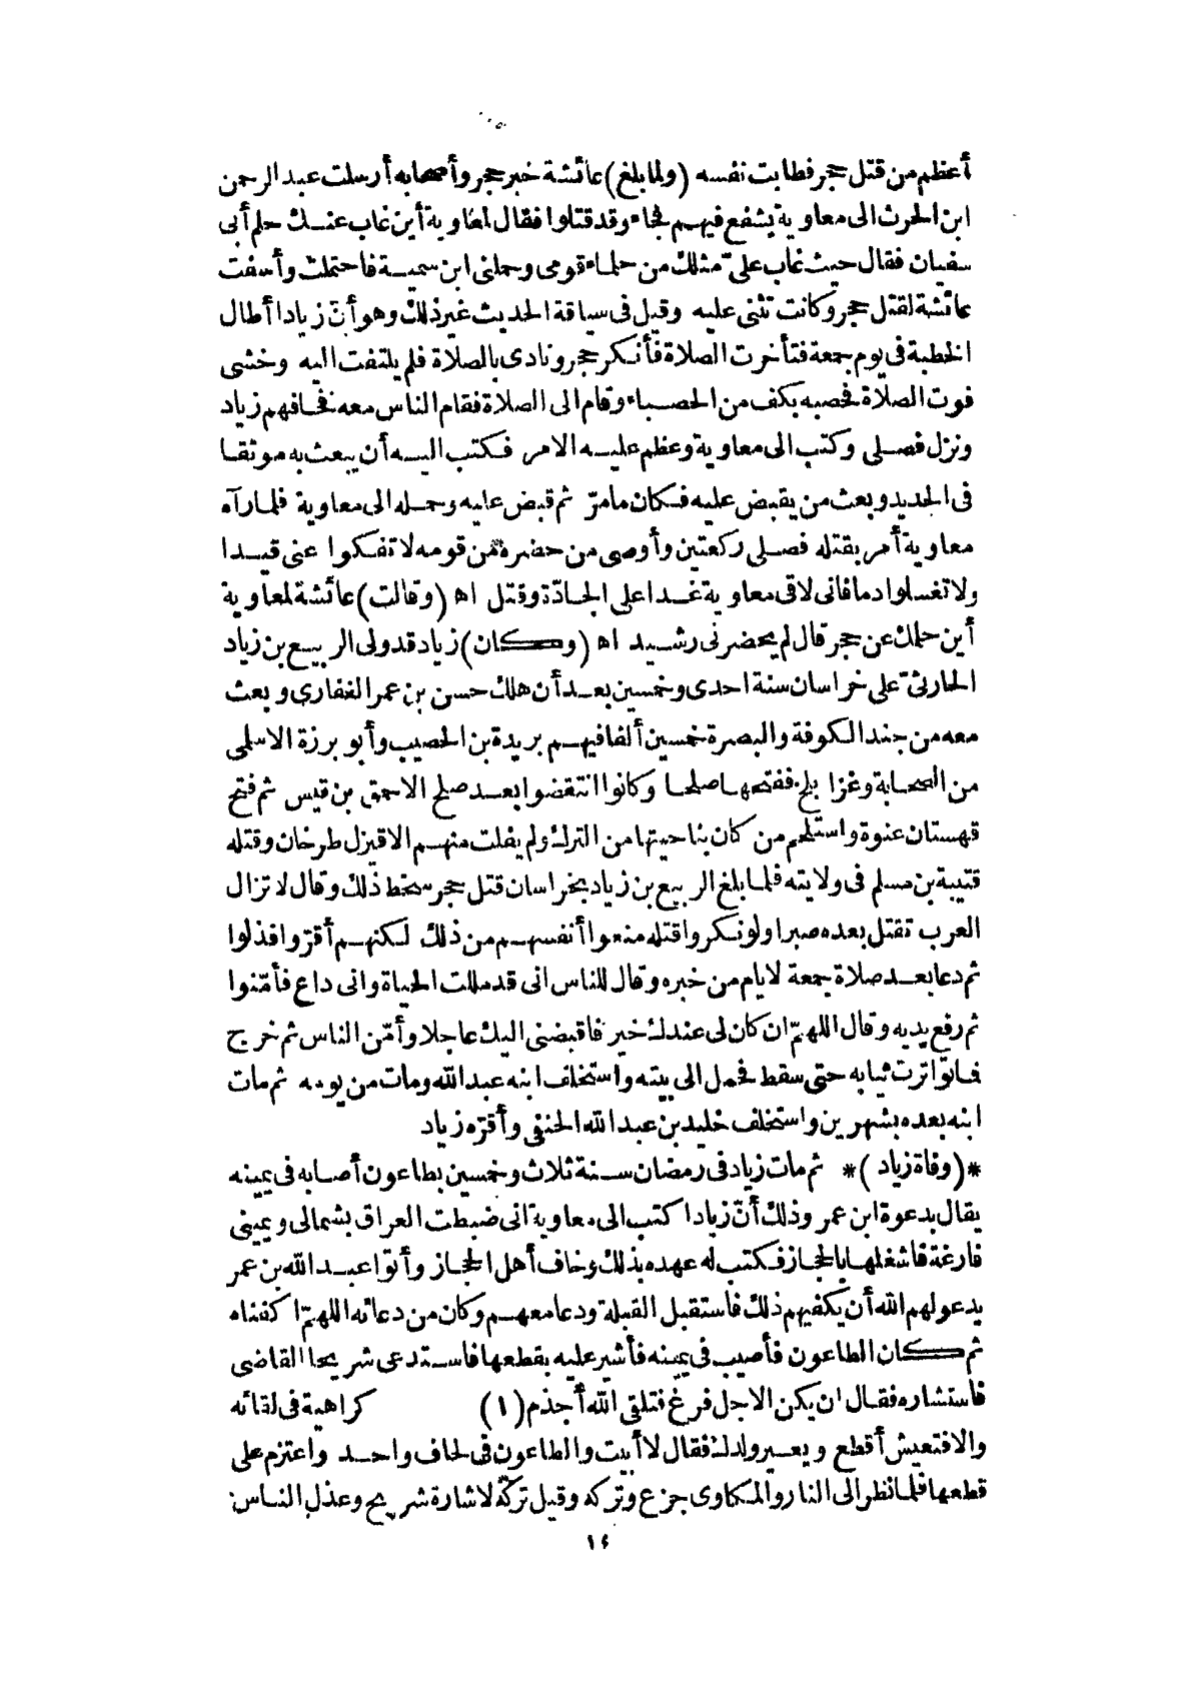 أعظم من قتل حجر فطابت نفسه (ولما بلغ) عائشة خبر حجر وأصحابه أرسلت عبد الرحمن
ابن الحرث الى معاوية يشفع فيهم فجاء وقد قتلوا فقال لمعاوية أين غاب عنك حلم أبى
سفيان فقال حيث غاب علىّ مثلك من حلماء قومى وحملنى ابن سمية فاحتملت وأسفت
عائشة لقتل حجر وكانت تثنى عليه وقيل فى سياقة الحديث غير ذلك وهو أنّ زيادا أطال
الخطبة فى يوم جمعة فتأخرت الصلاة فأنكر حجر ونادى بالصلاة فلم يلتفت اليه وخشى
فوت الصلاة فحصبه بكف من الحصباء وقام الى الصلاة فقام الناس معه فخافهم زياد
ونزل فصلى وكتب الى معاوية وعظم عليه الامر فكتب اليه أن يبعث به موثقا
فى الحديد وبعث من يقبض عليه فكان ما مرّ ثم قبض عليه وحمله الى معاوية فلما رآه
معاوية أمر بقتله فصلى ركعتين وأوصى من حضره من قومه لا تفكوا عنى قيدا
ولا تغسلوا دما فانى لاقى معاوية غدا على الجادّة وقتل اه (وقالت) عائشة لمعاوية
أين حلمك عن حجر قال لم يحضرنى رشيد اه (وكان) زياد قد ولى الربيع بن زياد
الحارثىّ على خراسان سنة احدى وخمسين بعد أن هلك حسن بن عمر الغفارى وبعث
معه من جند الكوفة والبصرة خمسين ألفا فيهم بريدة بن الحصيب وأبو برزة الاسلمى
من الصحابة وغزا بلخ ففتحها صلحا وكانوا انتقضوا بعد صلح الاحمق بن قيس ثم فتح
قهستان عنوة واستلحم من كان بناحيتها من الترك ولم يفلت منهم الا قيزل طرخان وقتله
قتيبة بن مسلم فى ولايته فلما بلغ الربيع بن زياد بخراسان قتل حجر سخط ذلك وقال لا تزال
العرب تقتل بعده صبرا ولو نكروا قتله منعوا أنفسهم من ذلك لكنهم أقرّوا فذلوا
ثم دعا بعد صلاة جمعة لايام من خبره وقال للناس انى قد مللت الحياة وانى داع فأمّنوا
ثم رفع يديه وقال اللهمّ ان كان لى عندك خير فاقبضنى اليك عاجلا وأمّن الناس ثم خرج
فما تواترت ثيابه حتى سقط فحمل الى بيته واستخلف ابنه عبد الله ومات من يومه ثم مات
ابنه بعده بشهرين واستخلف خليد بن عبد الله الحنفى وأقرّه زياد
*(وفاة زياد)* ثم مات زياد فى رمضان سنة ثلاث وخمسين بطاعون أصابه فى يمينه
يقال بدعوة ابن عمر وذلك أنّ زيادا كتب الى معاوية انى ضبطت العراق بشمالى ويمينى
فارغة فاشغلها بالحجاز فكتب له عهده بذلك وخاف أهل الحجاز وأتوا عبد الله بن عمر
يدعو لهم الله أن يكفيهم ذلك فاستقبل القبلة ودعا معهم وكان من دعائه اللهمّ اكفناه
ثم كان الطاعون فأصيب فى يمينه فأشير عليه بقطعها فاستدعى شريحا القاضى
فاستشاره فقال ان يكن الاجل فرغ فتلقى الله أجذم (١) كراهية فى لقائه
والا فتعيش أقطع ويعير ولدك فقال لا أبيت والطاعون فى لحاف واحد واعتزم على
قطعها فلما نظر الى النار والمكاوى جزع وتركه وقيل تركه لاشارة شريح وعذل الناس
١٤